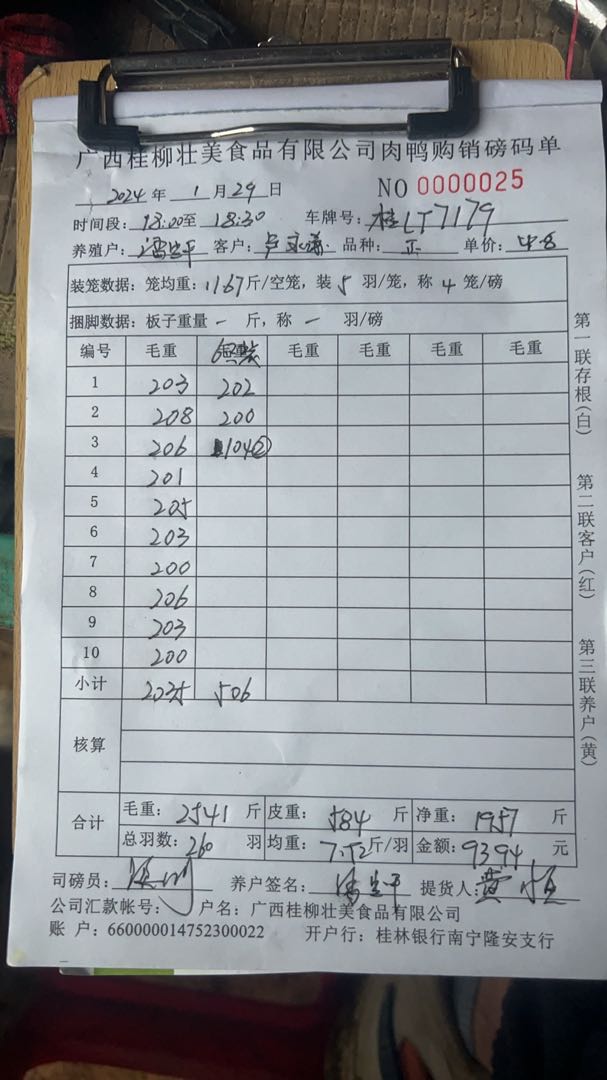 广西桂柳壮美食品有限公司肉鸭购销磅码单
2024 年 1 月 29 日 NO 0000025
时间段: 18:20至 18:30 车牌号: 桂LT7179
养殖户: 客户: 卢 品种: 正 单价: 4.8
装笼数据: 笼均重: 11.67斤/空笼, 装 5 羽/笼, 称 4 笼/磅
捆脚数据: 板子重量 一 斤, 称 一 羽/磅
编号 毛重 毛重 毛重 毛重 毛重
1 203 202
2 208 200
3 206 104②
4 201
5 205
6 203
7 200
8 206
9 203
10 200
小计 2035 506
核算
合计 毛重: 2541 斤 皮重: 584 斤 净重: 1957 斤
总羽数: 260 羽 均重: 7.52斤/羽 金额: 9394 元
司磅员: 养户签名: 提货人: 黄
公司汇款帐号: 户名: 广西桂柳壮美食品有限公司
账 户: 660000014752300022 开户行: 桂林银行南宁隆安支行
第一联存根(白)
第二联客户(红)
第三联养户(黄)